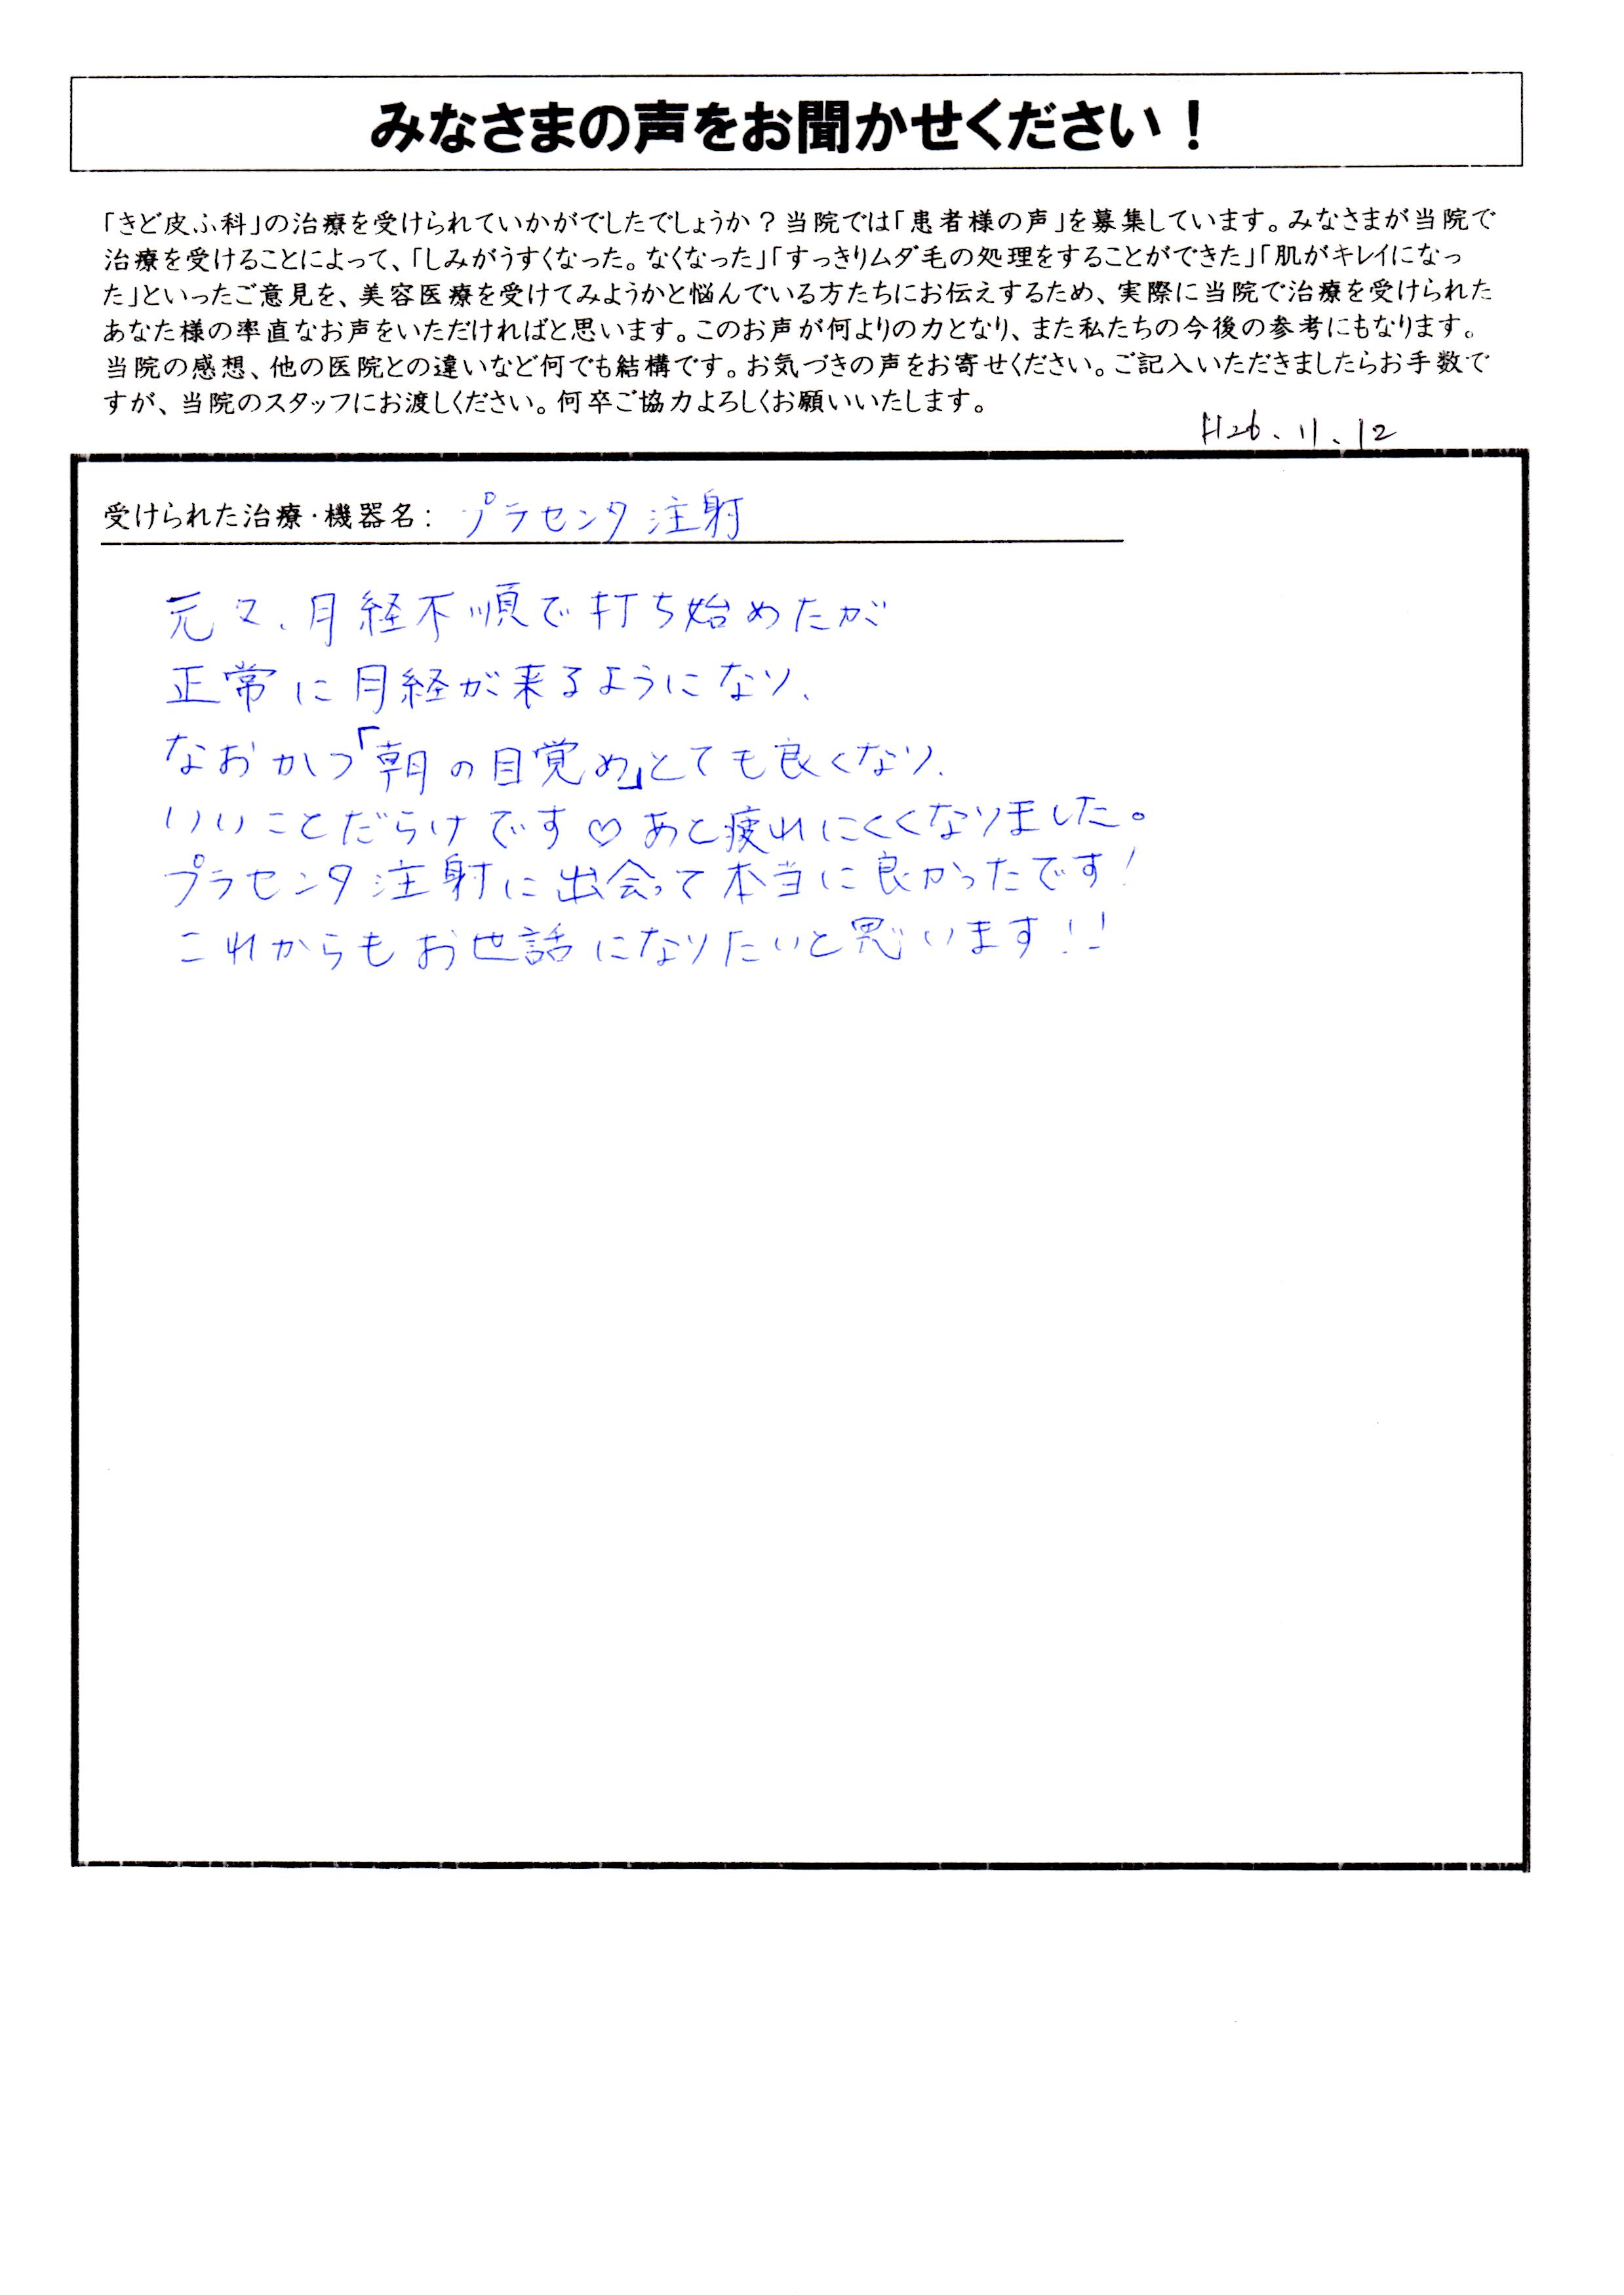 みなさまの声をお聞かせください！
「きど皮ふ科」の治療を受けられていかがでしたでしょうか？当院では「患者様の声」を募集しています。みなさまが当院で
治療を受けることによって、「しみがうすくなった。なくなった」「すっきりムダ毛の処理をすることができた」「肌がキレイになっ
た」といったご意見を、美容医療を受けてみようかと悩んでいる方たちにお伝えするため、実際に当院で治療を受けられた
あなた様の率直なお声をいただければと思います。このお声が何よりの力となり、また私たちの今後の参考にもなります。
当院の感想、他の医院との違いなど何でも結構です。お気づきの声をお寄せください。ご記入いただきましたらお手数で
すが、当院のスタッフにお渡しください。何卒ご協力よろしくお願いいたします。
H26.11.12
受けられた治療・機器名：プラセンタ注射
元々、月経不順で打ち始めたが
正常に月経が来るようになり、
なおかつ「朝の目覚め」とても良くなり、
いいことだらけです♡あと疲れにくくなりました。
プラセンタ注射に出会って本当に良かったです！
これからもお世話になりたいと思います！！